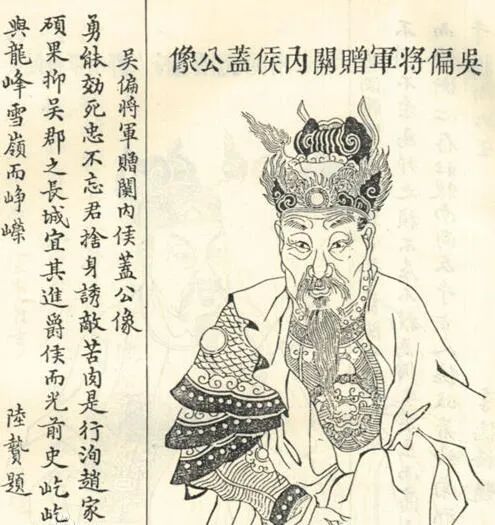 吳偏將軍贈關內侯蓋公像
吳偏將軍贈關內侯蓋公像
勇能効死忠不忘君捨身誘敵苦肉是行洵趙家
碩果抑吳郡之長城宜其進爵侯而光前史屹屹
與龍峰雪嶺而崢嶸
陸贄題